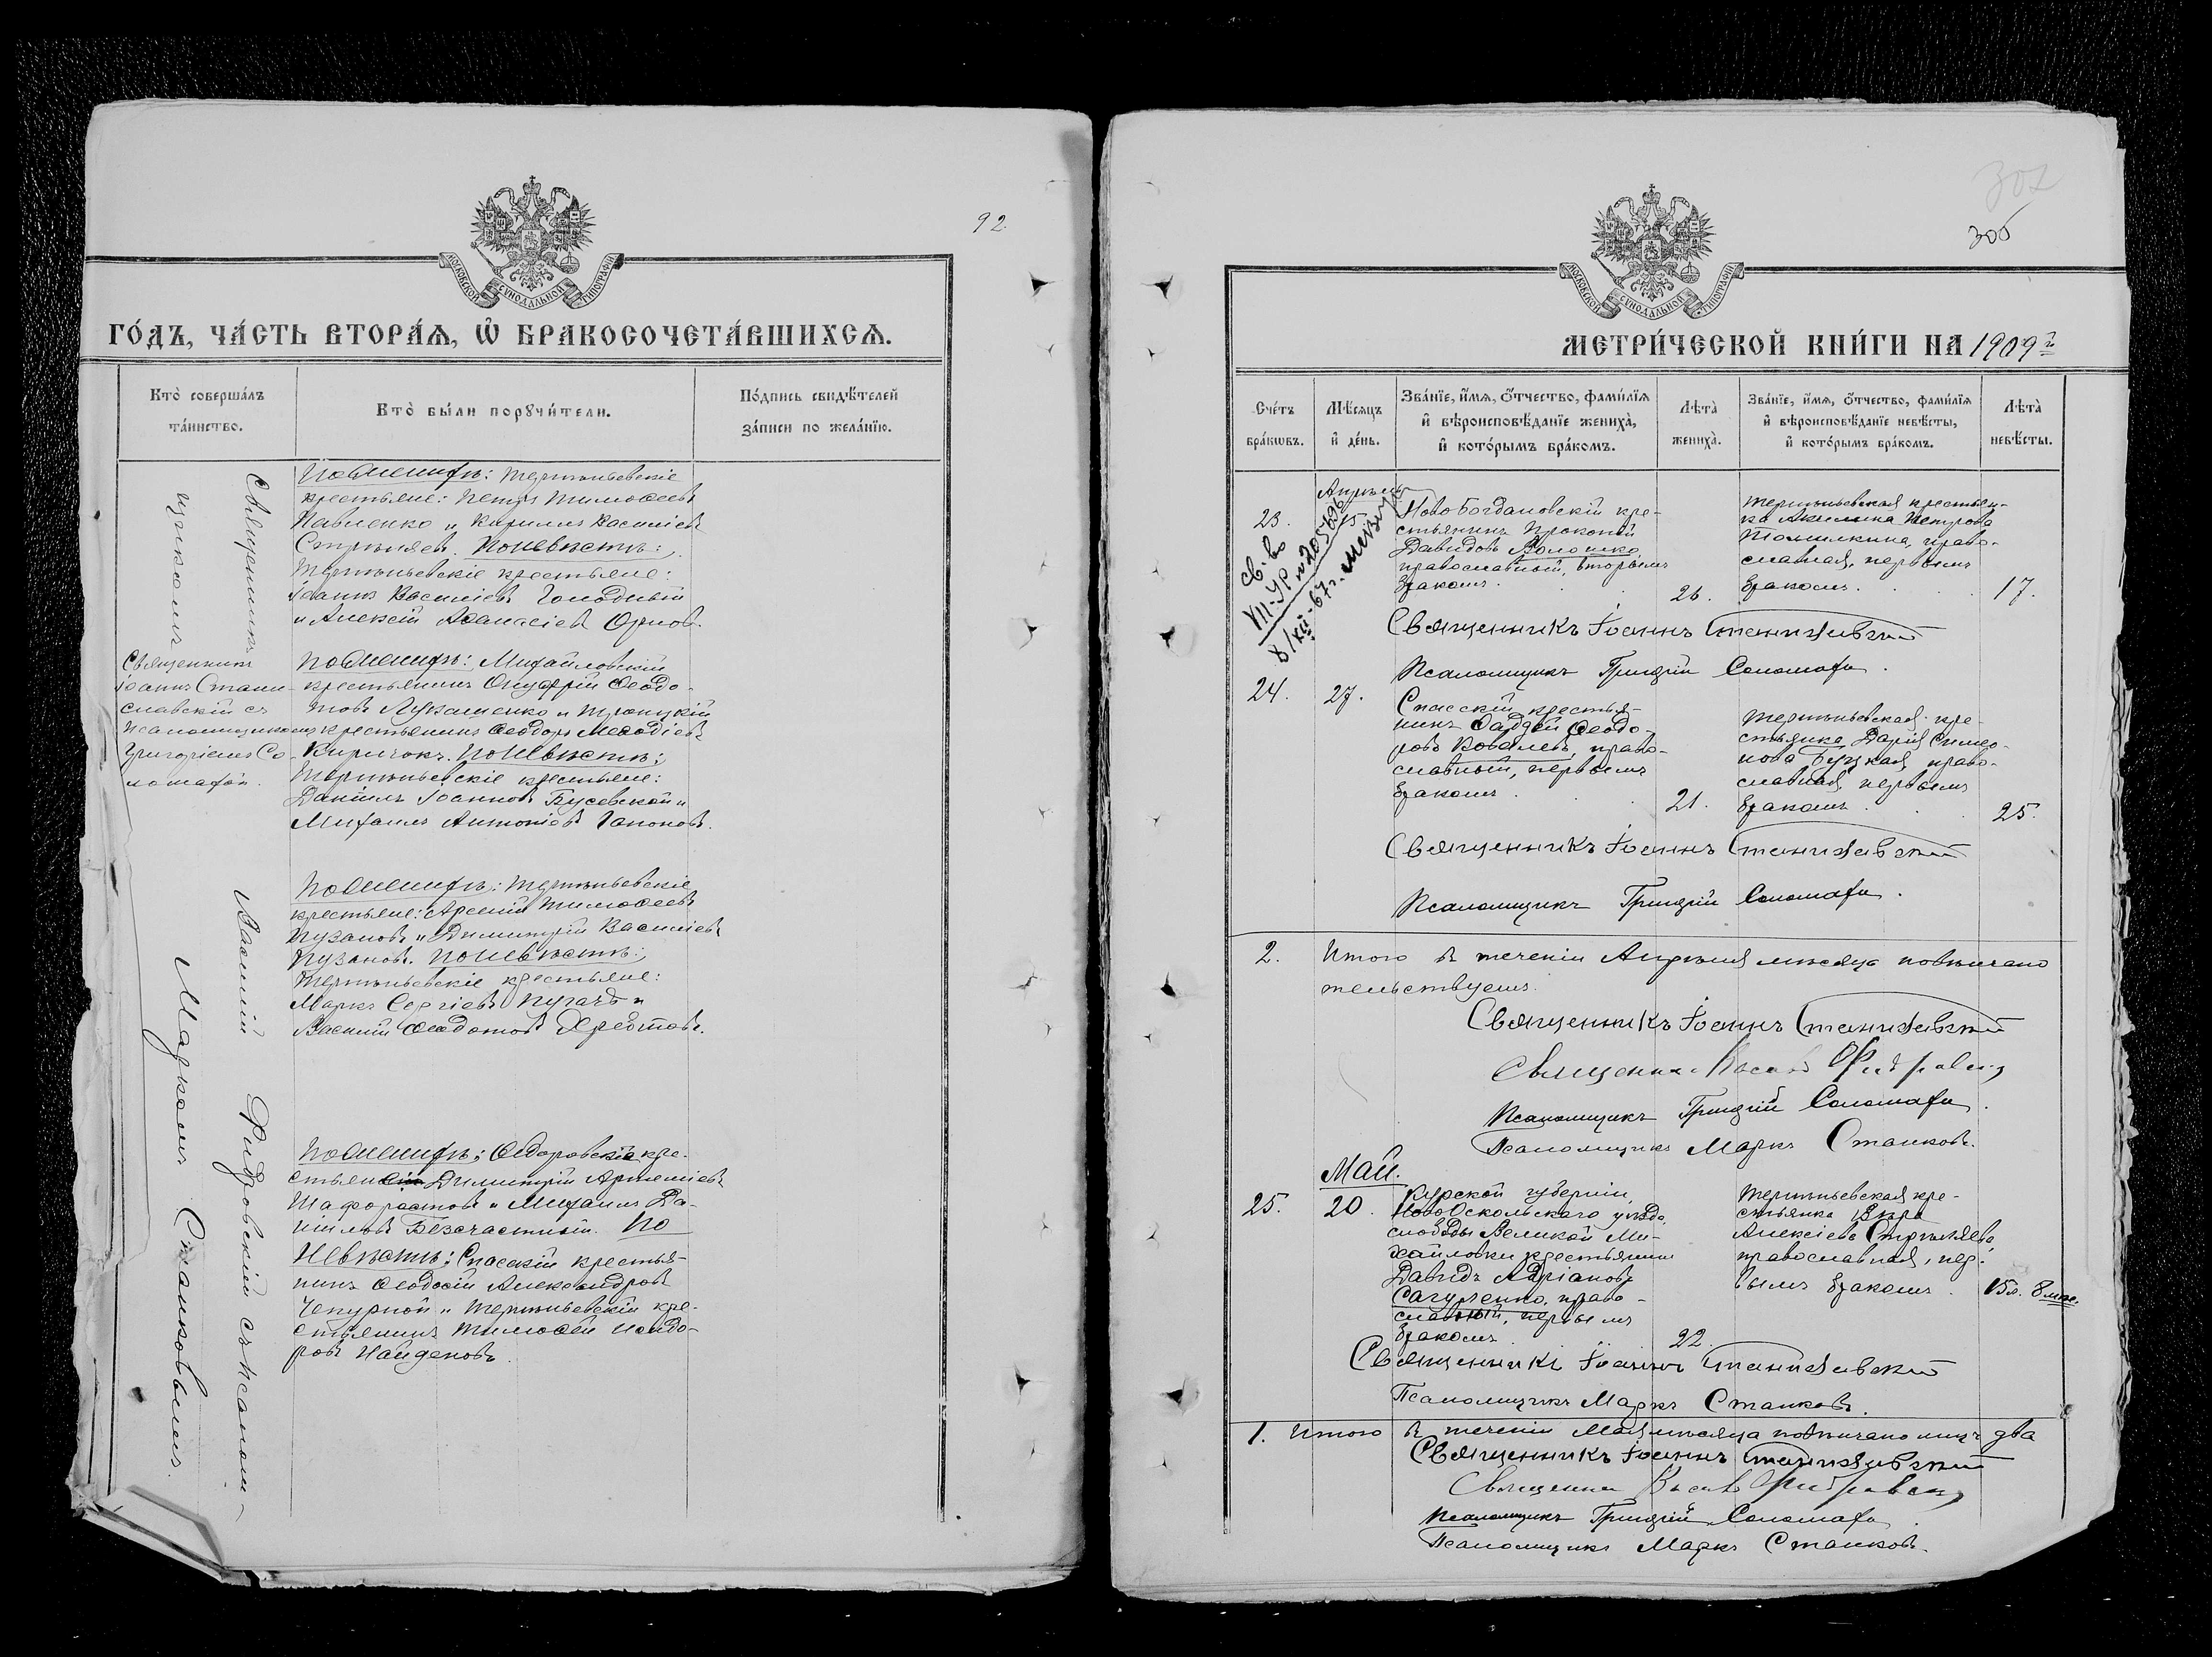 92.
МОСКОВСКОЙ СѴНОДАЛЬНОЙ ТИПОГРАФІИ
ГО́ДЪ, ЧА́СТЬ ВТОРА́Ѧ, Ѽ БРАКОСОЧЕТА́ВШИХСѦ.
Кто̀ соверша́лъ
та́инство.
Кто̀ бы́ли порꙋчи́тели.
По́дпись свидѣ́телей
за́писи по жела́нїю.
Священникъ Василій Фидровскій съ псалом-
щикомъ Маркомъ Станковымъ.
По женихѣ: Терпѣньевскіе
крестьяне: Петръ Тимоѳеевъ
Павленко и Кириллъ Василіевъ
Стрѣляевъ. По невѣстѣ:
Терпѣньевскіе крестьяне:
Іоаннъ Василіевъ Голодный
и Алексій Аѳанасіевъ Орловъ.
Священникъ
Іоаннъ Стани-
славскій съ
псаломщикомъ
Григоріемъ Со-
ломахой.
По женихѣ: Михайловскій
крестьянинъ Онуфрій Ѳеодо-
товъ Лукашенко и Троицкій
крестьянинъ Ѳеодоръ Меѳодіевъ
Киричокъ. По невѣстѣ:
Терпѣньевскіе крестьяне:
Даніилъ Іоанновъ Бусовской и
Михаилъ Антоніевъ Гапоновъ.
По женихѣ: Терпѣньевскіе
крестьяне: Арсеній Тимоѳеевъ
Пузановъ и Димитрій Василіевъ
Пузановъ. По невѣстѣ:
Терпѣньевскіе крестьяне:
Маркъ Сергіевъ Пугачъ и
Василій Ѳеодотовъ Хребтовъ.
По женихѣ: Ѳедоровскіе кре-
стьяне Димитрій Артеміевъ
Шафорастовъ и Михаилъ Да-
ніиловъ Безсчастный. По
невѣстѣ: Спасскій крестья-
нинъ Ѳеодосій Александровъ
Чепурной и Терпѣньевскій кре-
стьянинъ Тимоѳей Исидо-
ровъ Найденовъ.
302
305
МОСКОВСКОЙ СѴНОДАЛЬНОЙ ТИПОГРАФІИ
МЕТРИ́ЧЕСКОЙ КНИ́ГИ НА 1909й
Сче́тъ
бра́кѡвъ.
Мѣ́сяцъ
и҆ де́нь.
Зва́нїе, и҆́мѧ, ѻ҆́тчество, фами́лїѧ
и҆ вѣроисповѣ́данїе жениха̀,
и҆ кото́рымъ бра́комъ.
Лѣта̀
жениха̀.
Зва́нїе, и҆́мѧ, ѻ҆́тчество, фами́лїѧ
и҆ вѣроисповѣ́данїе невѣ́сты,
и҆ кото́рымъ бра́комъ.
Лѣта̀
невѣ́сты.
Апрѣль
23.
15
св.-во
VII-УР №205896
8/XII-67г.
Новобогдановскій кре-
стьянинъ Прокопій
Давидовъ Волошко,
православный, вторымъ
бракомъ.
26.
Терпѣньевская крестьян-
ка Акилина Петрова
Толмилкина, право-
славная, первымъ
бракомъ.
17.
Священникъ Іоаннъ Станиславскій
Псаломщикъ Григорій Соломаха.
24.
27.
Спасскій крестья-
нинъ Ѳаддей Ѳеодо-
ровъ Ковалевъ, право-
славный, первымъ
бракомъ.
21.
Терпѣньевская кре-
стьянка Дарія Симео-
нова Буцкая, право-
славная, первымъ
бракомъ.
25.
Священникъ Іоаннъ Станиславскій
Псаломщикъ Григорій Соломаха.
2. Итого въ теченіи Апрѣля мѣсяца повѣнчано
тельствуемъ.
Священникъ Іоаннъ Станиславскій
Священникъ Василій Фидровскій
Псаломщикъ Григорій Соломаха.
Псаломщикъ Маркъ Станковъ.
Май.
25.
20.
Курской губерніи,
Новооскольскаго уѣзда,
слободы Великой Ми-
хайловки крестьянинъ
Давидъ Адріановъ
Сагуленко, право-
славный, первымъ
бракомъ
22.
Терпѣньевская кре-
стьянка Вѣра
Алексіева Стрѣляева,
православная, пер-
вымъ бракомъ.
15л. 8мѣс.
Священникъ Іоаннъ Станиславскій
Псаломщикъ Маркъ Станковъ.
1. Итого въ теченіи Мая мѣсяца повѣнчано лицъ два
Священникъ Іоаннъ Станиславскій
Священникъ Василій Фидровскій
Псаломщикъ Григорій Соломаха.
Псаломщикъ Маркъ Станковъ.